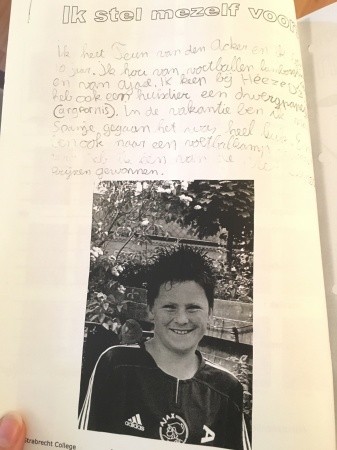 Ik stel mezelf voor
Ik heet Teun van den Acker en ik
10 jaar. Ik hou van voetballen
en van ajax. Ik keep bij Heeze
heb ook een huisdier een dwergpapegaai
(agapornis). In de vakantie ben ik
Spanje gegaan het was heel leuk
ben ook naar een voetbalkamp
een van de
prijzen gewonnen.
adidas
AJAX
A
strabrecht College